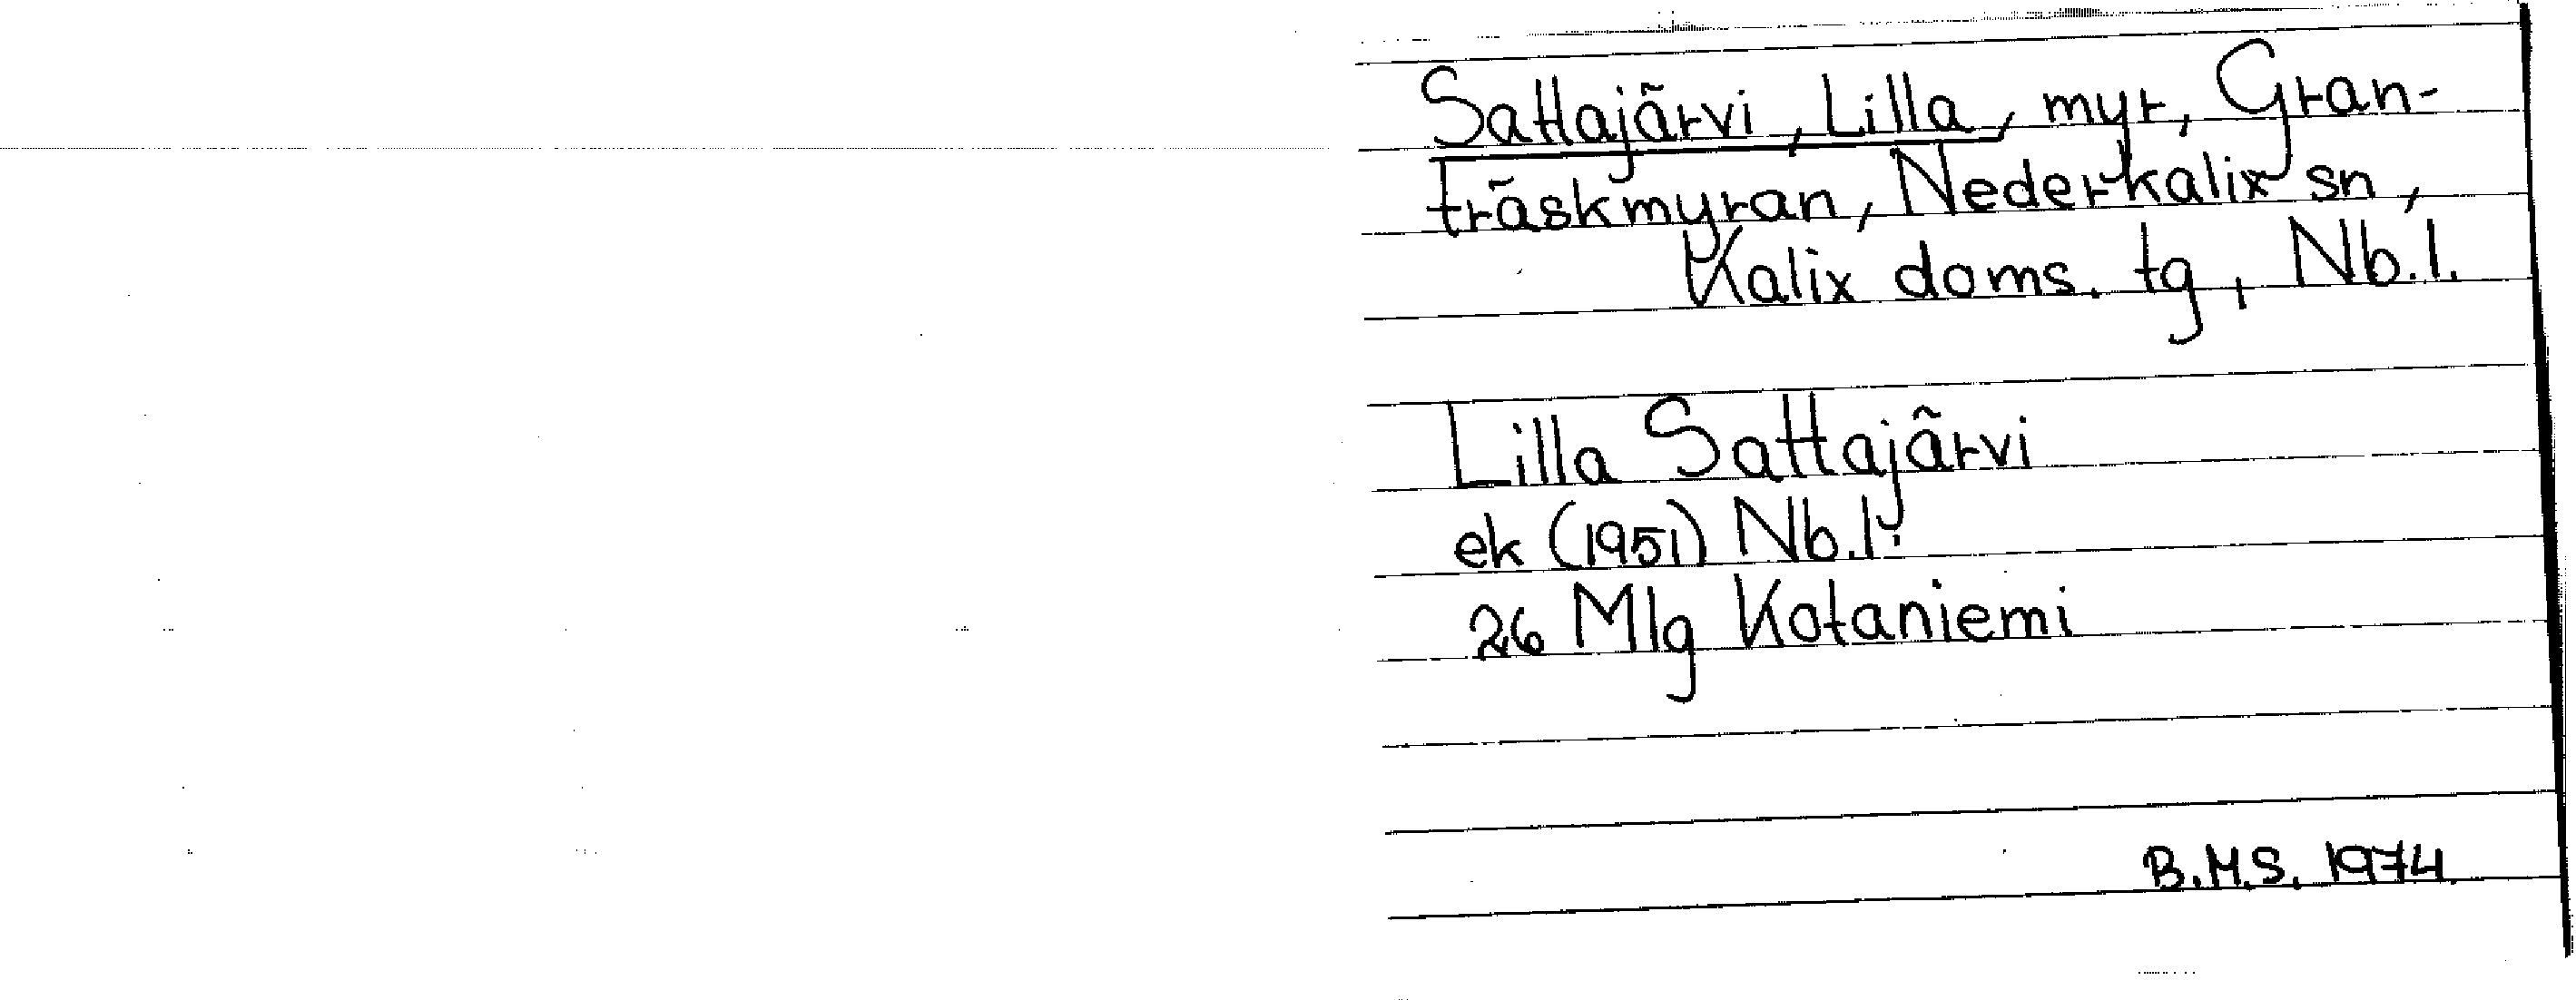 Sattajärvi, Lilla, myr, Gran-
träskmyran, Nederkalix sn,
Kalix doms. tg, Nb.l.
Lilla Sattajärvi
ek (1951) Nb.l.
26 Mlg Kotaniemi
B.M.S. 1974.